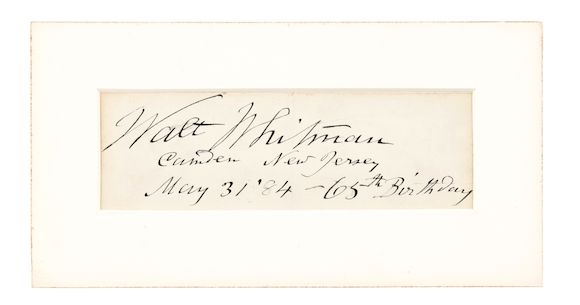 Walt Whitman
Camden New Jersey
May 31 '84 – 65th Birthday